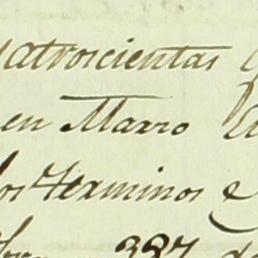 quatroscientas
en Marzo
los Terminos e
387 de